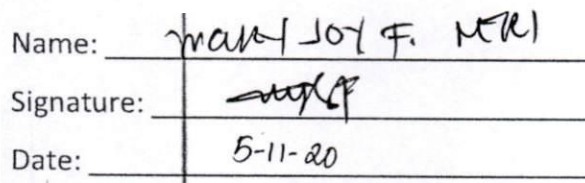 Name: Mary Joy F. Neri
Signature:
Date: 5-11-20